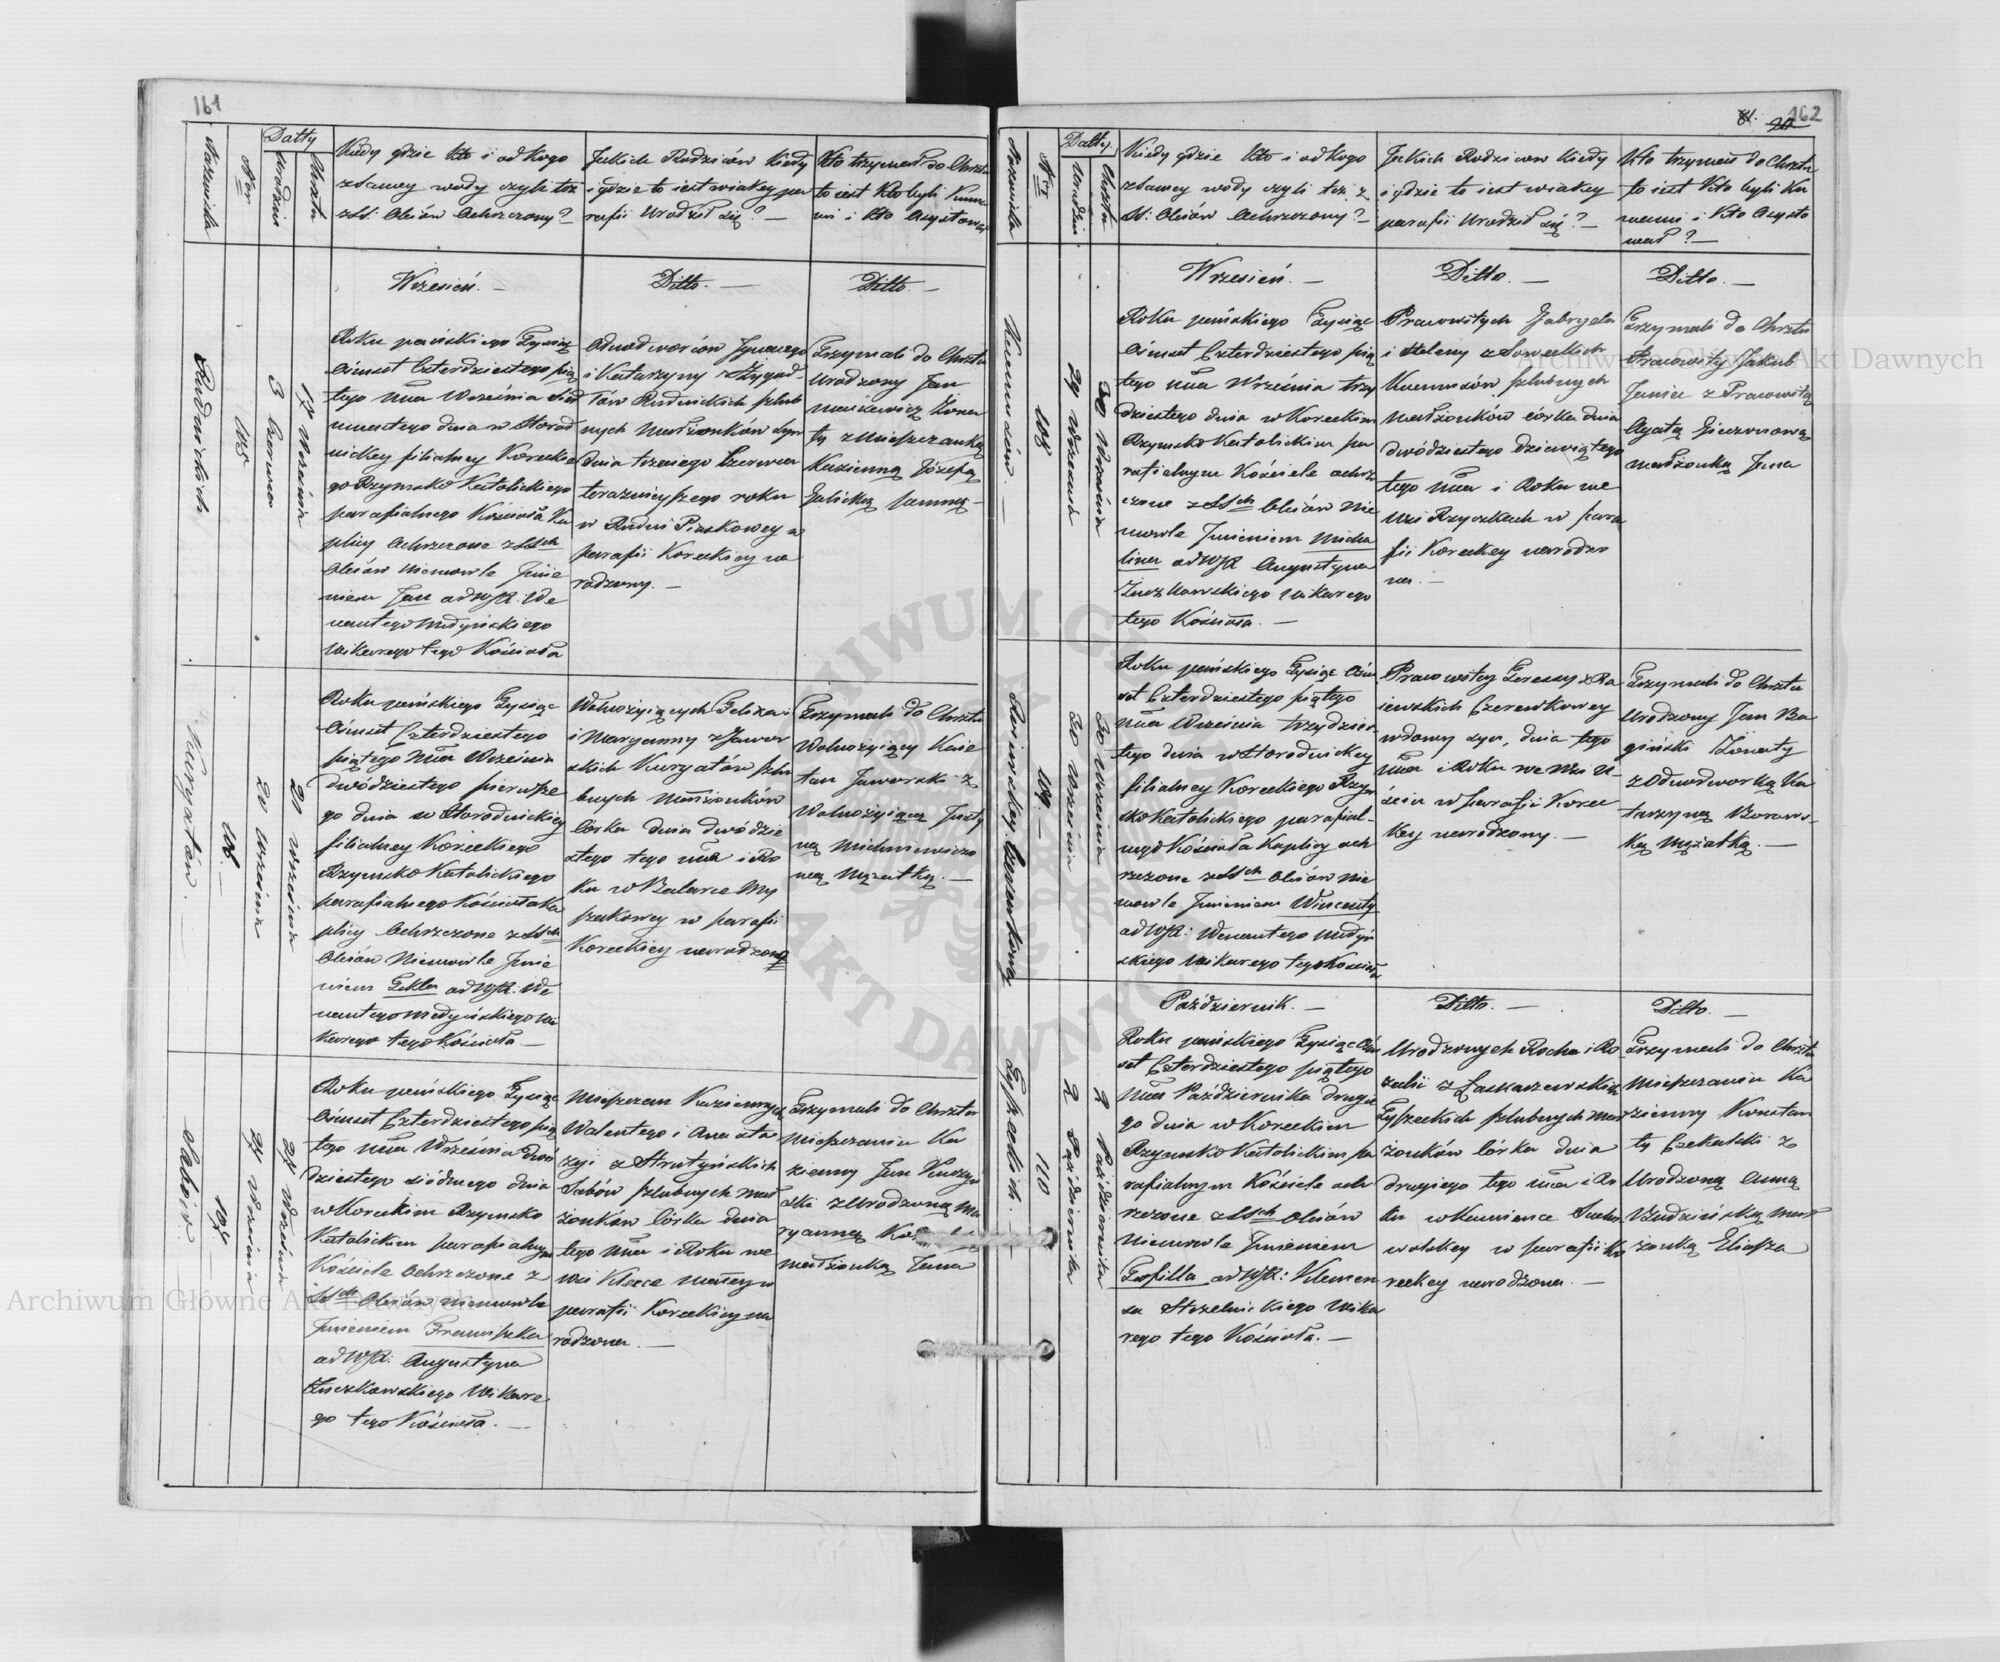 161
Nazwiska
Ner
Datty
Urodzin
Chrztu
Kiedy gdzie kto i od kogo
z samey wody czyli też
z SS: Olejów Ochrzczony? —
Jakich Rodziców kiedy
i gdzie to iest w iakiey pa
rafii Urodził się? —
Kto trzymał do Chrztu
to iest kto byli Kumo
wie i kto Assystował
Wrzesień. —
Ditto. —
Ditto. —
Rudnickich
3 Czerwca
17 Września
Roku pańskiego Tysiąc
Ośmset Czterdziestego pią
tego Mca Września Sied
mnastego dnia w Horod
nickiey filialney Koreckie
go Rzymsko Katolickiego
parafialnego Kościoła Ka
plicy Ochrzczone z SSch
Olejów Niemowle Jmie
niem Jan od WJX: We
nantego Medyńskiego
Wikarego tego Kościoła
Odnodworców Jgnacego
i Katarzyny z
Rudnickich szlub
nych Małżonków Syn
dnia trzeciego Czerwca
teraznieyszego roku
w Rudni Piskowey w
parafii Koreckiey na
rodzony. —
Trzymali do Chrztu
Urodzony Jan
z Mieszczanką
Kazienną Józefą
Kuryatów.
106. —
20 Września
21 Września
Roku pańskiego Tysiąc
Ośmset Czterdziestego
piątego Mca Września
dwódziestego pierwsze
go dnia w Horodnickiey
filialney Koreckiego
Rzymsko Katolickiego
parafialnego Kościoła Ka
plicy Ochrzczone z SSch
Olejów Niemowle Jmie
niem Tekla od WJX: We
nantego Medyńskiego Wi
karego tego Kościoła —
Wolnożyiących Felixa
i Maryanny z Jawor
skich Kuryatów szlu
bnych Małżonków
Córka dnia dwódzie
stego tego Mca i Ro
ku w
w parafii
Koreckiey narodzona
Trzymali do Chrztu
Wolnożyiący Kaie
tan Jaworski z
Wolnożyiącą Justy
ną Michniewiczo
wą Mężatką. —
107
27 Września
27 Września
Roku pańskiego Tysiąc
Ośmset Czterdziestego pią
tego Mca Września dwó
dziestego siódmego dnia
w Koreckim Rzymsko
Katolickim parafialnym
Kościele Ochrzczone z
SSch Olejów niemowle
Jmieniem Franciszka
od WJX: Augustyna
Żuczkowskiego Wikare
go tego Kościoła. —
Mieszczan Kaziennych
Walentego i Anasta
zyi z Stratyńskich
szlubnych Mał
żonków Córka dnia
tego Mca i Roku we
wsi Klece Małey w
parafii Koreckiey na
rodzona. —
Trzymali do Chrztu
Mieszczanin Ka
zienny Jan
ski z Urodzoną Ma
ryanną
małżonką Jana
162
Nazwiska
Ner
Datty
Urodzin
Chrztu
Kiedy gdzie kto i od kogo
z samey wody czyli też z
SS: Olejów Ochrzczony? —
Jakich Rodziców kiedy
i gdzie to iest w iakiey
parafii Urodził się? —
Kto trzymał do Chrztu
to iest kto byli Ku
mami i kto Assysto
wał? —
Wrzesień. —
Ditto. —
Ditto. —
108
29 Września
30 Września
Roku pańskiego Tysiąc
Ośmset Czterdziestego pią
tego Mca Września trzy
dziestego dnia w Koreckim
Rzymsko Katolickim pa
rafialnym Kościele ochrz
czone z SSch Olejów Nie
mowle Jmieniem Micha
lina od WJX Augustyna
Żuczkowskiego Wikarego
tego Kościoła. —
Pracowitych Gabryela
i Heleny z Soweckich
szlubnych
małżonków córka dnia
dwódziestego dziewiątego
tego Mca i Roku we
wsi Rzyszkach w para
fii Koreckiey narodzo
na. —
Trzymali do Chrztu
Pracowity Jakub
z Pracowitą
Agatą
małżonką Jana
109. —
30 Września
30 Września
Roku pańskiego Tysiąc Ośm
set Czterdziestego piątego
Mca Września trzydzies
tego dnia w Horodnickiey
filialney Koreckiego Rzym
sko Katolickiego parafial
nego Kościoła Kaplicy och
rzczone z SSch Olejów Nie
mowle Jmieniem Wincenty
od WJX: Wenantego Medyń
skiego Wikarego tego Kościoła
Pracowitey Teressy z Ra
iewskich Czerewkowey
wdowy syn, dnia tego
Mca i Roku we Wsi U
w parafii Korec
kiey narodzony. —
Trzymali do Chrztu
Urodzony Jan
Żonaty
z Odnodworką Ka
tarzyną Borows
ką Mężatką. —
Październik. —
Ditto. —
Ditto. —
Łyszeckich. —
110
2 Października
2 Października
Roku pańskiego Tysiąc Ośm
set Czterdziestego piątego
Mca Października drugie
go dnia w Koreckim
Rzymsko Katolickim pa
rafialnym Kościele och
rzczone z SSch Olejów
Niemowle Jmieniem
Teofilla od WJX: Klemen
sa Strzelnickiego Wika
rego tego Kościoła. —
Urodzonych Rocha i Ro
zalii z Łaskarzewskich
Łyszeckich szlubnych mał
żonków Córka dnia
drugiego tego Mca i Ro
ku w Kamience
wolskiey w parafii Ko
reckiey narodzona. —
Trzymali do Chrztu
Mieszczanin Ka
zienny Konstan
ty Czekalski z
Urodzoną Anną
mał
żonką Eliasza
Archiwum Główne Akt Dawnych
Archiwum Główne Akt Dawnych
ARCHIWUM GŁÓWNE AKT DAWNYCH